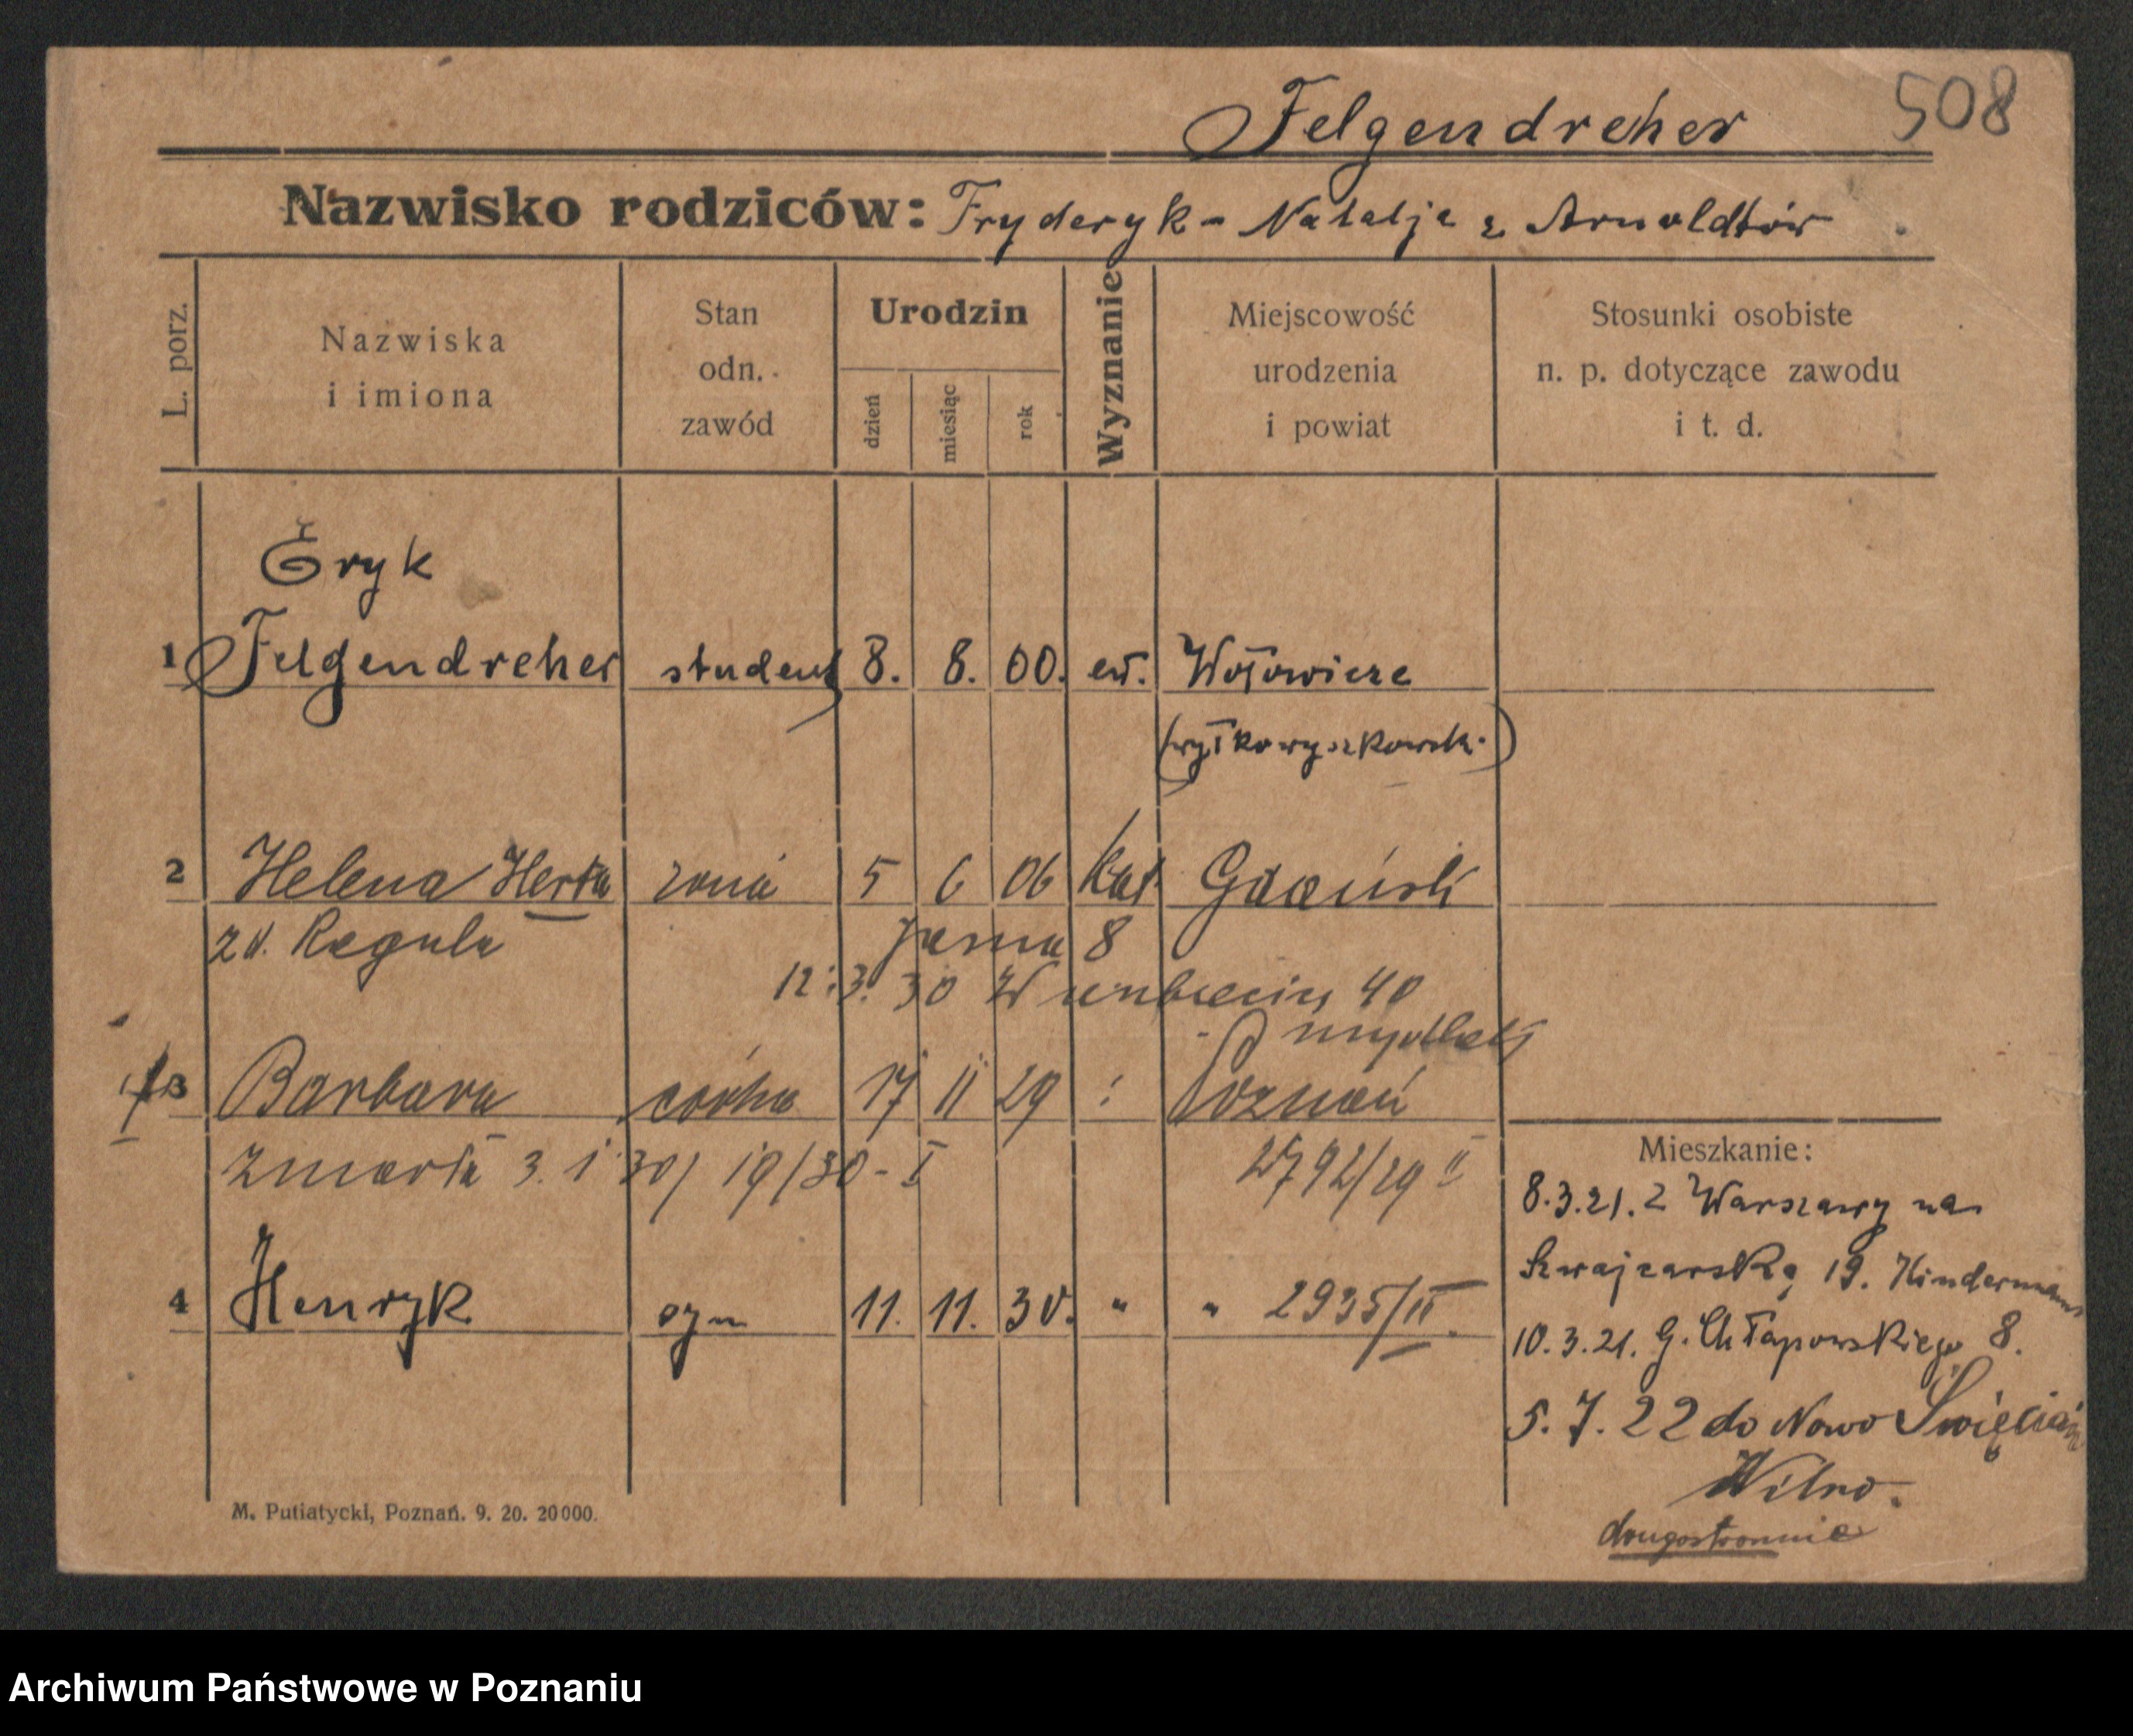 Felgendreher 508
Nazwisko rodziców: Fryderyk - Natalja z Arnoldtów
L. porz.
Nazwiska
i imiona
Stan
odn.
zawód
Urodzin
dzień
miesiąc
rok
Wyznanie
Miejscowość
urodzenia
i powiat
Stosunki osobiste
n. p. dotyczące zawodu
i t. d.
Eryk
1 Felgendreher student 8. 8. 00. ew. Wołowicze
(wyłkowyszkowsk.)
2 Helena Herta żona 5 6 06 kat Gdańsk
zd. Regula
Jasna 8
12.3.30 40
3 Barbara córka 17 11 29 Poznań
zmarła 3.1.30 / 19/30 - I 2792/29 II
4 Henryk syn 11. 11. 30. " " 2935/II.
Mieszkanie:
8.3.21. z Warszawy na
Szwajcarską 19. Kinderman
10.3.21. G. Chłapowskiego 8.
5.7.22 do Nowo Święcian
Wilno.
drugostronnie
M. Putiatycki, Poznań. 9. 20. 20000.
Archiwum Państwowe w Poznaniu